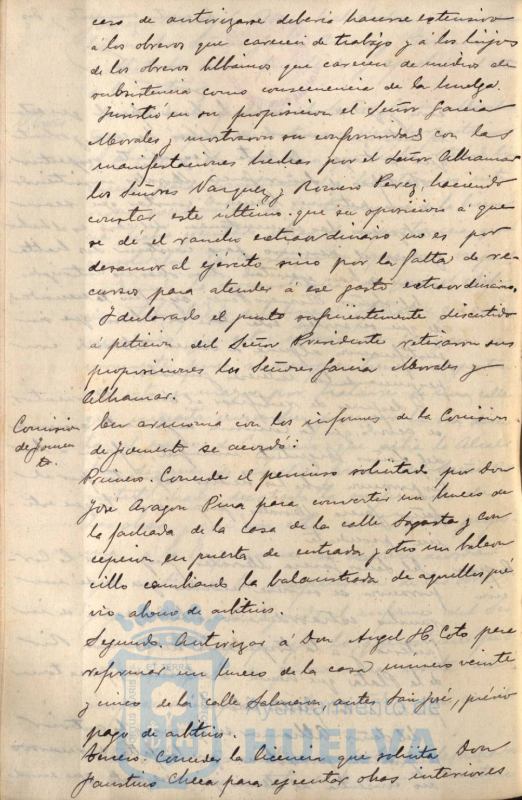 caso de autorizarse deberia hacerse extensivo
á los obreros que carecen de trabajo y á los hijos
de los obreros Albamos que carecen de medios de
subsistencia como consecuencia de la huelga.
Insistió en su proposicion el Señor Garcia
Morales y mostraron su conformidad con las
manifestaciones hechas por el Señor Alhamar
los Señores Vazquez y Romero Perez, haciendo
constar este último que su oposicion á que
se dé el rancho extraordinario no es por
desamor al ejército sino por la falta de re-
cursos para atender á ese gasto extraordinario.
Y declarado el punto suficientemente discutido
á peticion del Señor Presidente retiraron sus
proposiciones los Señores Garcia Morales y
Alhamar.
Comision
de Fomen
to.
En armonía con los informes de la Comision
de Fomento se acordó:
Primero. Conceder el permiso solicitado por Don
José Aragon Pina para convertir un hueco de
la fachada de la casa de la calle Sagasta y Con
cepcion en puerta de entrada y otro en balcon
cillo cambiando la balaustrada de aquellos pré
vio abono de arbitrios.
Segundo. Autorizar á Don Angel H. Coto para
reformar un hueco de la casa número veinte
y cinco de la calle Salmeron, antes San José, prévio
pago de arbitrios.
Tercero. Conceder la licencia que solicita Don
Faustino Checa para ejecutar obras interiores
Ayuntamiento de
HUELVA